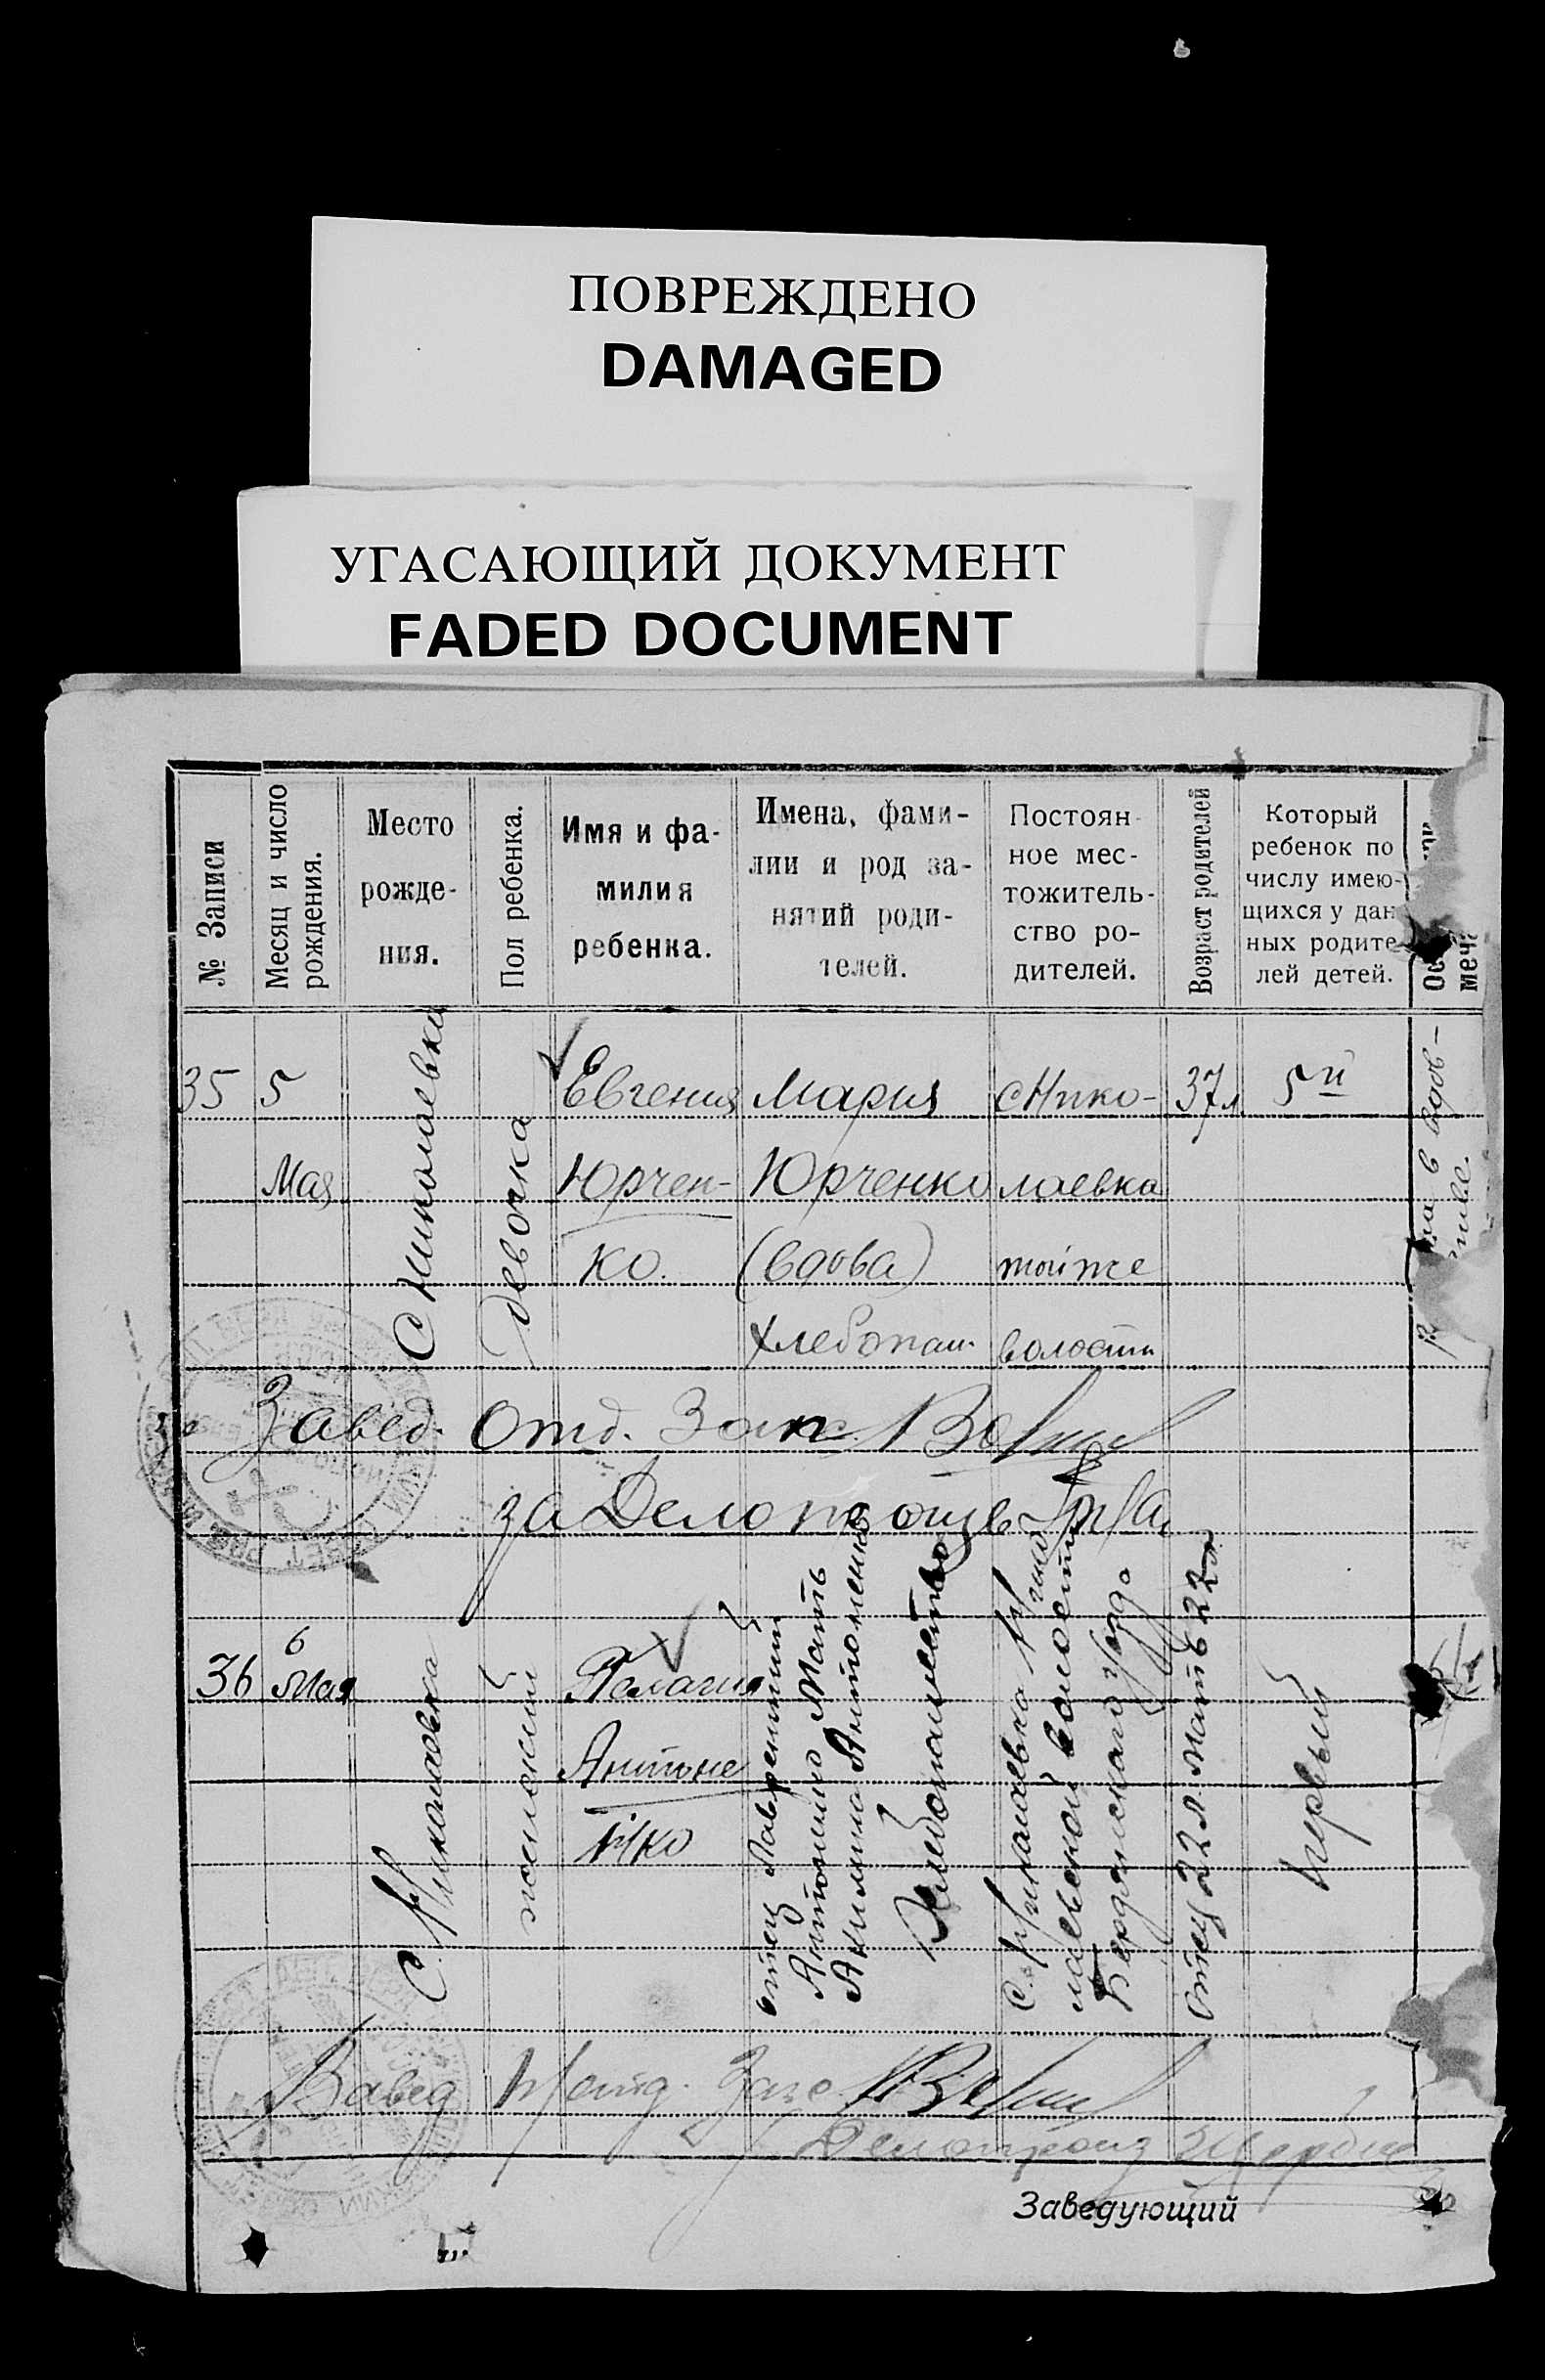 ПОВРЕЖДЕНО
DAMAGED
УГАСАЮЩИЙ ДОКУМЕНТ
FADED DOCUMENT
№ Записи
Месяц и число
рождения.
Место
рожде-
ния.
Пол ребенка.
Имя и фа-
милия
ребенка.
Имена, фами-
лии и род за-
нятий роди-
телей.
Постоян-
ное мес-
тожитель-
ство ро-
дителей.
Возраст родителей
Который
ребенок по
числу имею-
щихся у дан
ных родите-
лей детей.
35
5
Мая
С Николаевка
девочка
Евгения
Юрчен-
ко.
Мария
Юрченко
(вдова)
хлебопаш.
с Нико-
лаевка
тойже
волости
37 л
5й
в вдов-
Завед. Отд. Зап.
за Делопроизв
36
6
Мая
С. Николаевка
женский
Пелагия
Антоне
нко
отец Лаврентий
Антоненко Мать
Акилина Антоненко
Хлебопашество
с. Николаевка Нико
лаевской волости
Бердянского уезда
Отец 22 л. Мать 22 л.
первый
Завед. Загс
Делопроиз
Заведующий